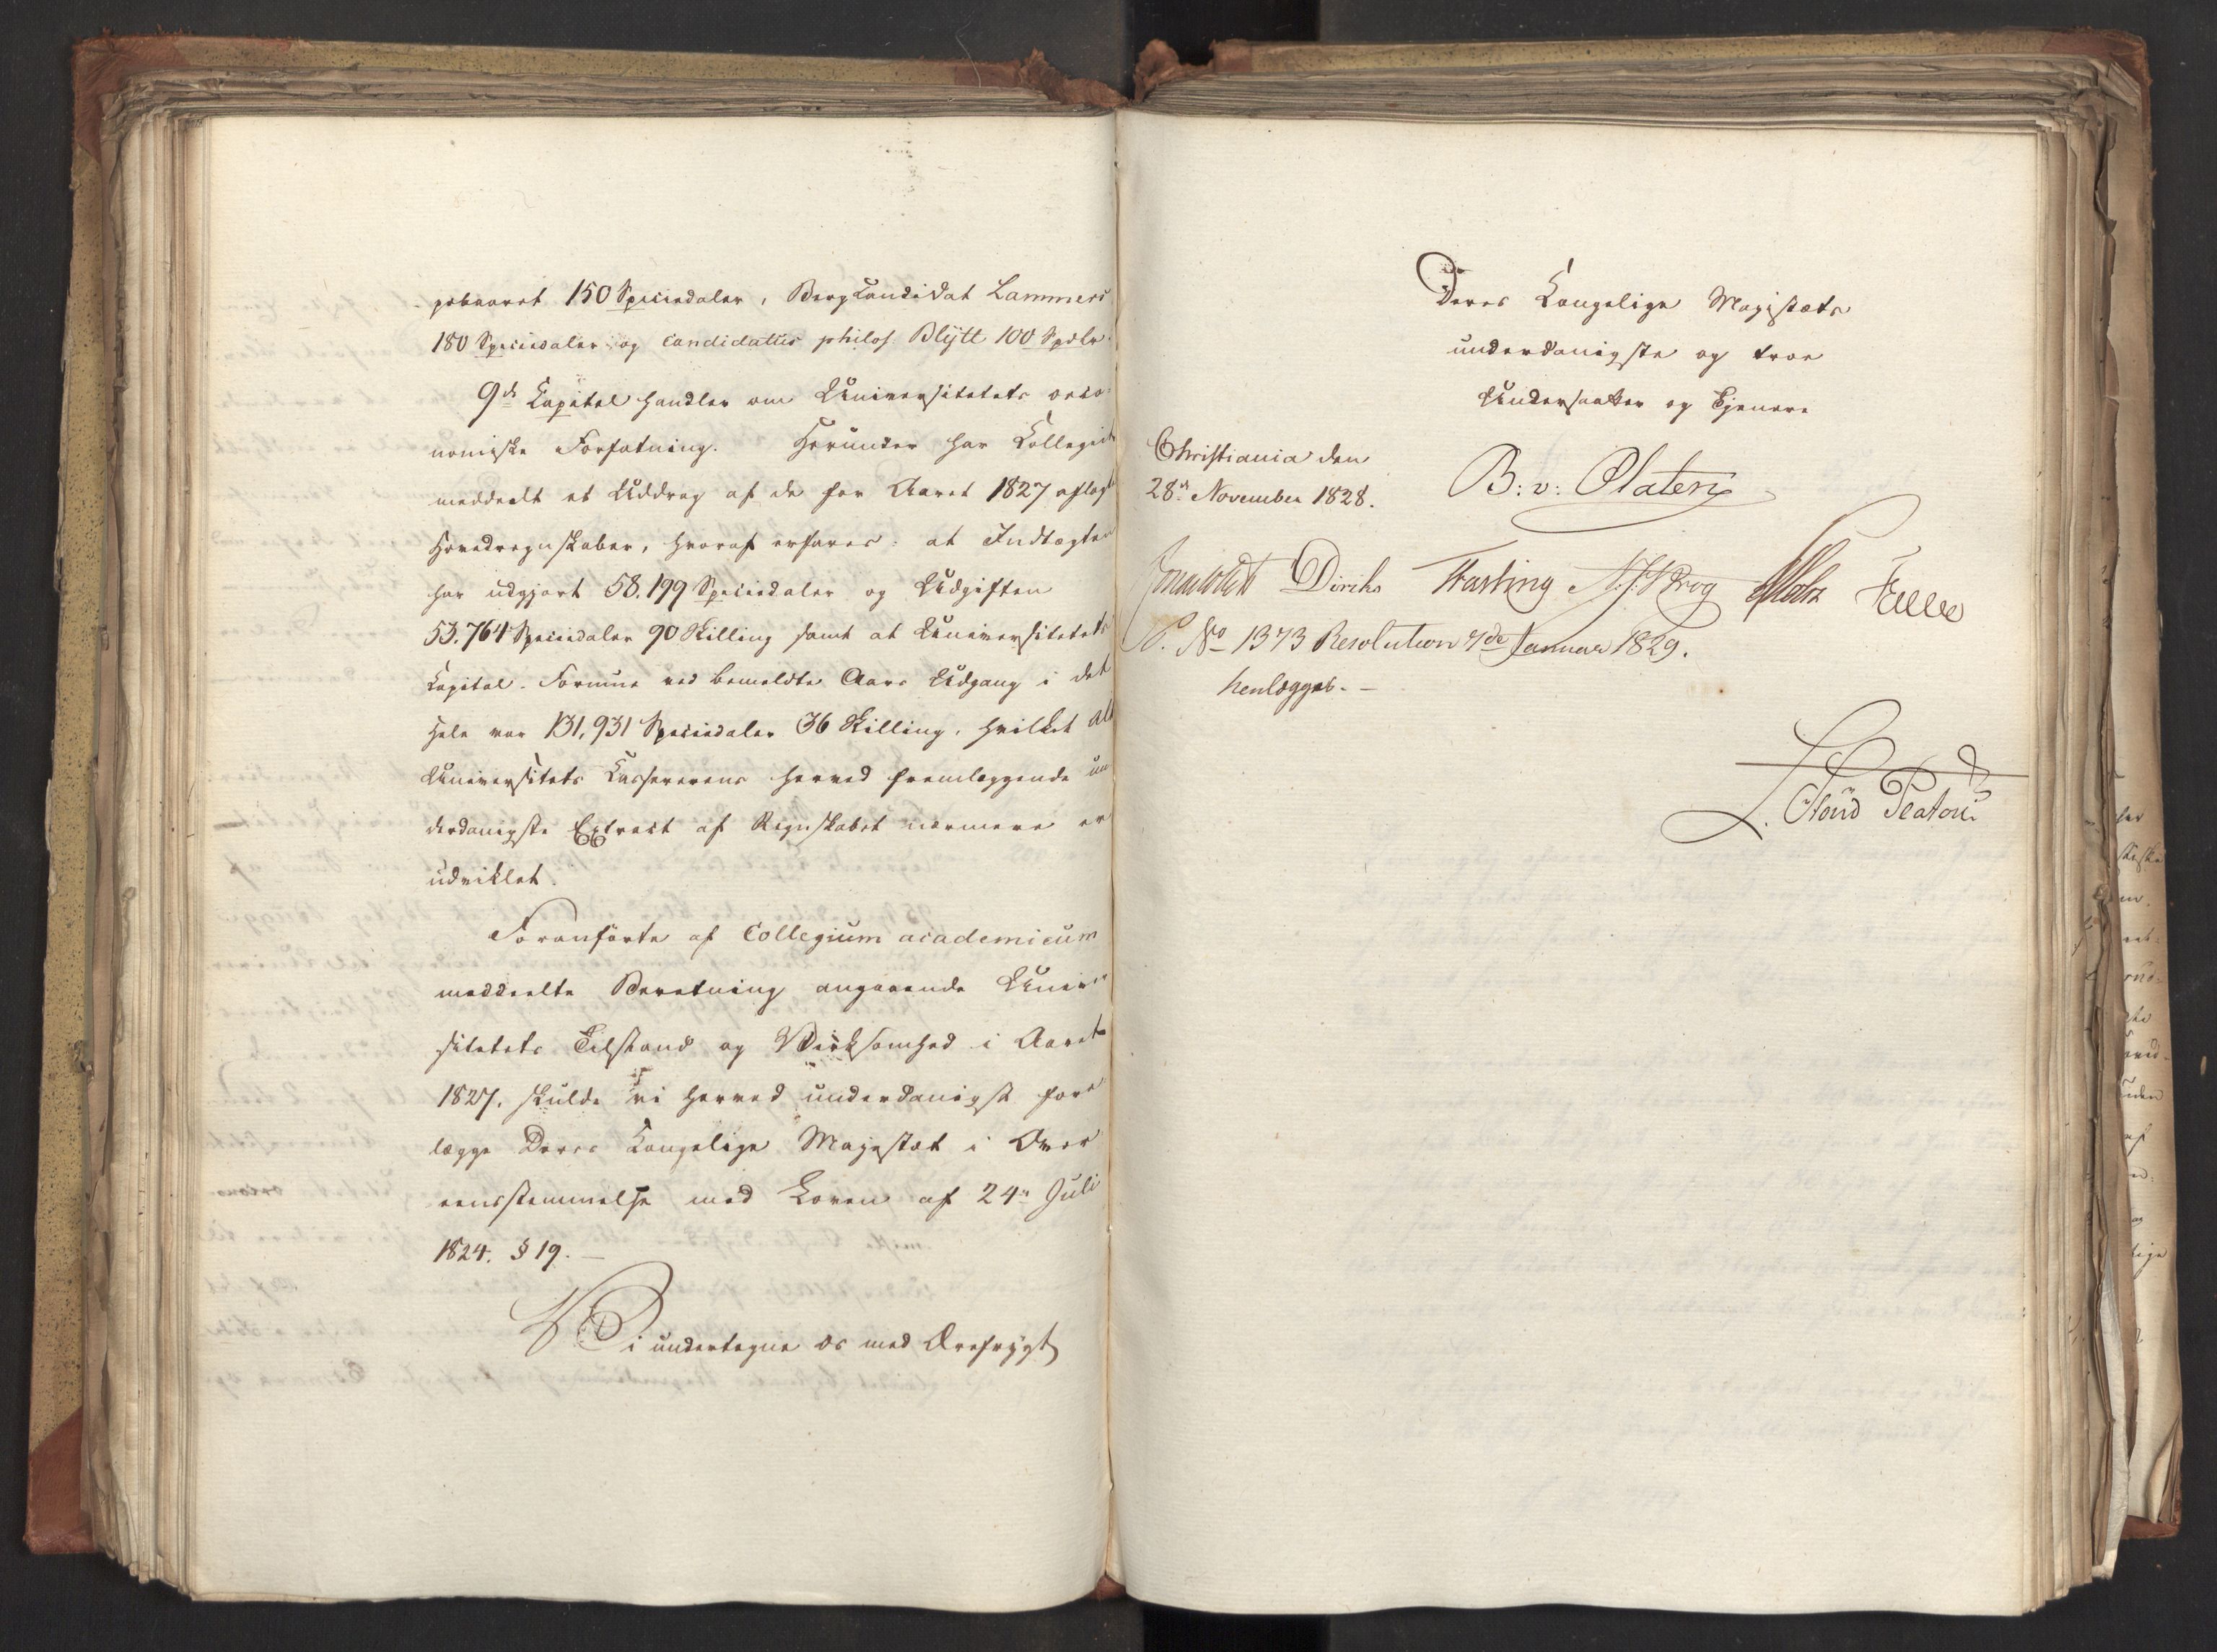 gebaaret 150 Speciedaler, Bergkandidat Lammers
180 Speciedaler og candidatus philos Blÿtt 100 Spdlr.
9de Kapitel handler om Universitetets oeco-
nomiske Forfatning. Herunder har Kollegiet
meddeelt et Uddrag af de for Aaret 1827 aflagte
Hovedregnskaber, hvoraf erfares: at Indtægten
har udgjort 58,199 Speciedaler og Udgiften
53.764 Speciedaler 90 Skilling samt at Universitetets
Kapital-Formue ved bemeldte Aars Udgang i det
Hele var 131,931 Speciedaler 36 Skilling, hvilket alt
Universitets Kassererens herved fremlæggende un-
derdanigste Extract af Regnskabet nærmere er
udviklet.
Foranførte af Collegium academicum
meddeelte Beretning angaaende Univer-
sitetets Tilstand og Virksomhed i Aaret
1827, skulde vi herved underdanigst fore-
lægge Deres Kongelige Majestæt i Over-
eensstemmelse med Loven af 24de Juli
1824. § 19. —
Vi undertegne os med Ærefrygt
Deres Kongelige Majestæts
underdanigste og troe
Undersaatter og Tjenere
Christiania den
28de November 1828.
B: v: Platen
Diriks Fasting Krog Motz
P. No 1373 Resolution 7de Januar 1829.
henlægges. —